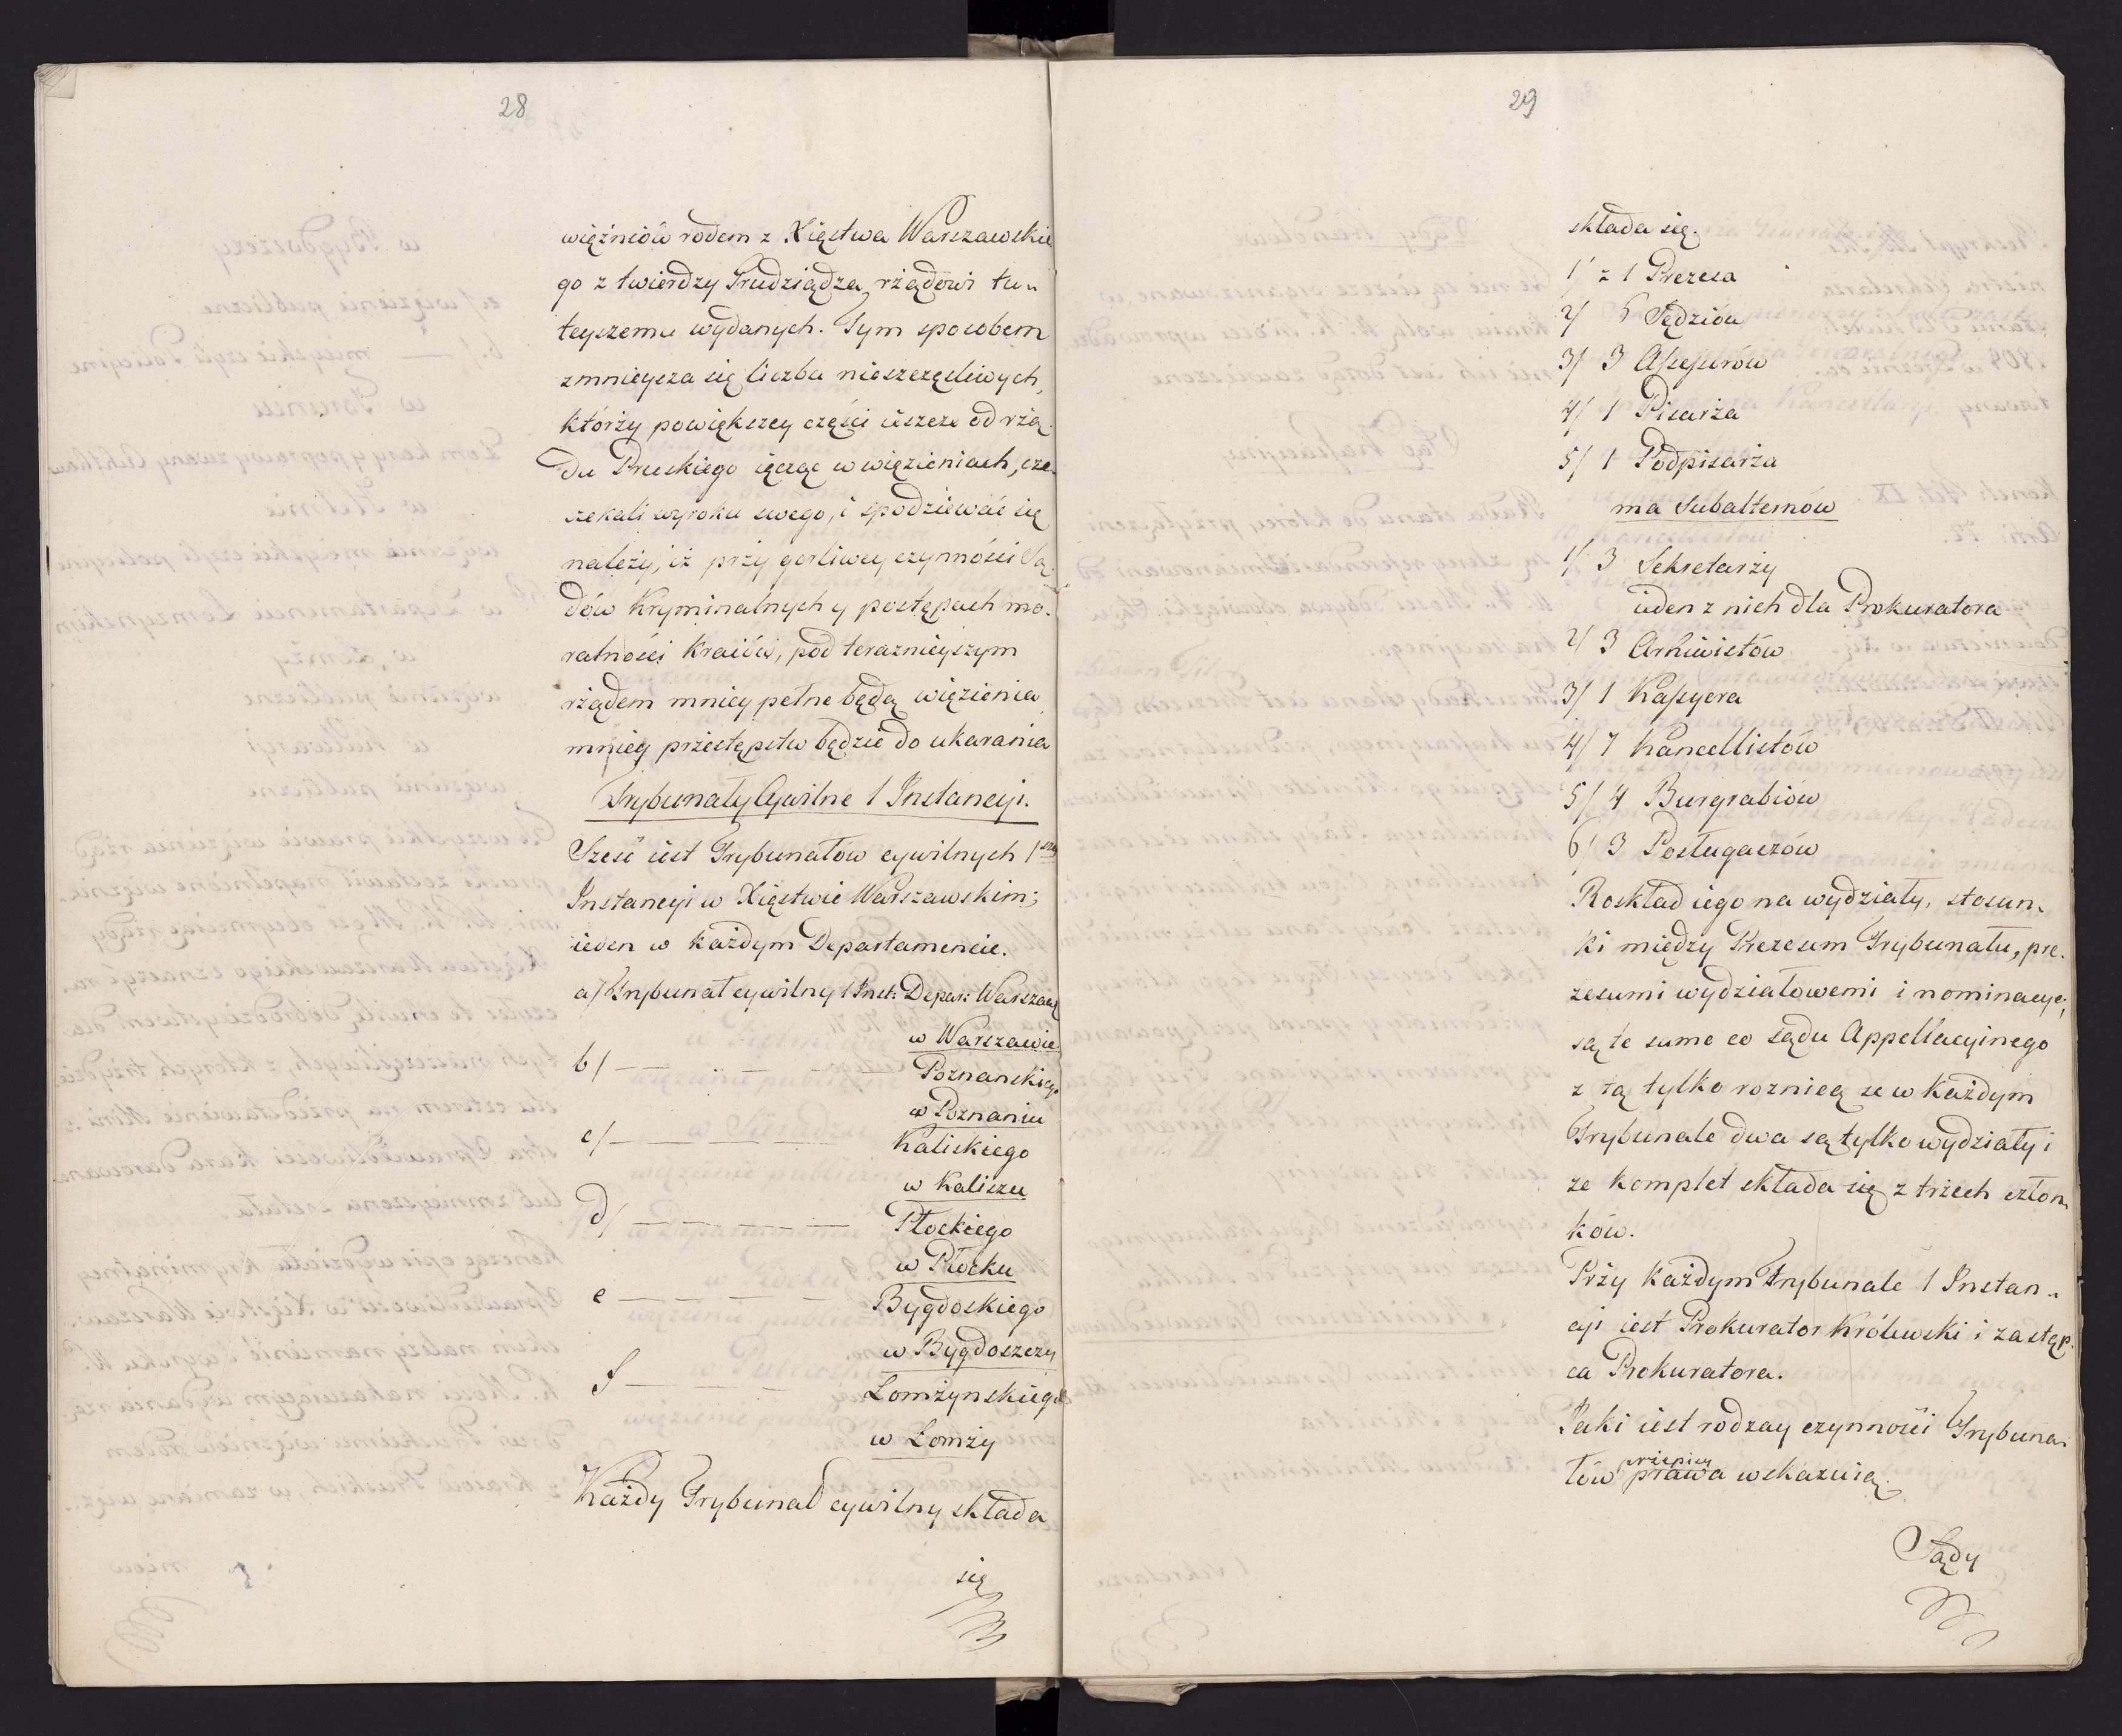 28
więźniów rodem z Xięstwa Warszawskie
go z twierdzy Grudziądza, rżądowi tu„
teyszemu wydanych. Tym sposobem
zmnieysza się liczba nieszczęśliwych,
którzy powiększey części ieszcze od rżą„
du Pruskiego ięcząc w więzieniach, cze„
czekali wyroku swego, i spodziewać się
należy, iż przy gorliwey czynności Są„
dów Kryminalnych y postępach mo„
ralności Kraiów, pod terazniejszym
rżądem mniey pełne będą więzienia,
mniey przestępstw będzie do ukarania
Trybunały Cywilne 1 Instancyi.
Sześć iest Trybunałów cywilnych 1szey
Instancyi w Xięstwie Warszawskim;
ieden w każdym Departamencie.
a/ Trybunał cywilny 1 Inst: Depar: Warszaw
w Warszawie
b/ — — — Poznanskiego
w Poznaniu
c/ — — — Kaliskiego
w Kaliszu
d/ — — — — — Płockiego
w Płocku
e — — — — Bygdoskiego
w Bygdoszczy
f — — — Łomżynskiego
w Łomży
Każdy Trybunał cywilny składa
się
29
składa się.
1/ z 1 Prezesa
2/ 6 Sędziów
3/ 3 Assessorów
4/ 1 Pisarża
5/ 1 Podpisarża
ma Subalternów
1/ 3 Sekretarży
ieden z nich dla Prokuratora
2/ 3 Archiwistów
3/ 1 Kassyera
4/ 7 Kancellistów
5/ 4 Burgrabiów
6/ 3 Posługaczów
Roskład iego na wydziały, stosun„
ki między Prezesem Trybunału, pre„
zesami wydziałowemi i nominacye,
są te same co sądu Appellacyinego
z tą tylko roznicą ze w każdym
Trybunale dwa są tylko wydziały i
ze komplet składa się z trzech człon„
ków.
Przy każdym Trybunale 1 Instan„
cyi iest Prokurator Królewski i zastęp„
ca Prokuratora.
Jaki iest rodzay czynności Trybuna„
przepisy
łów prawa wskazuią.
Sądy